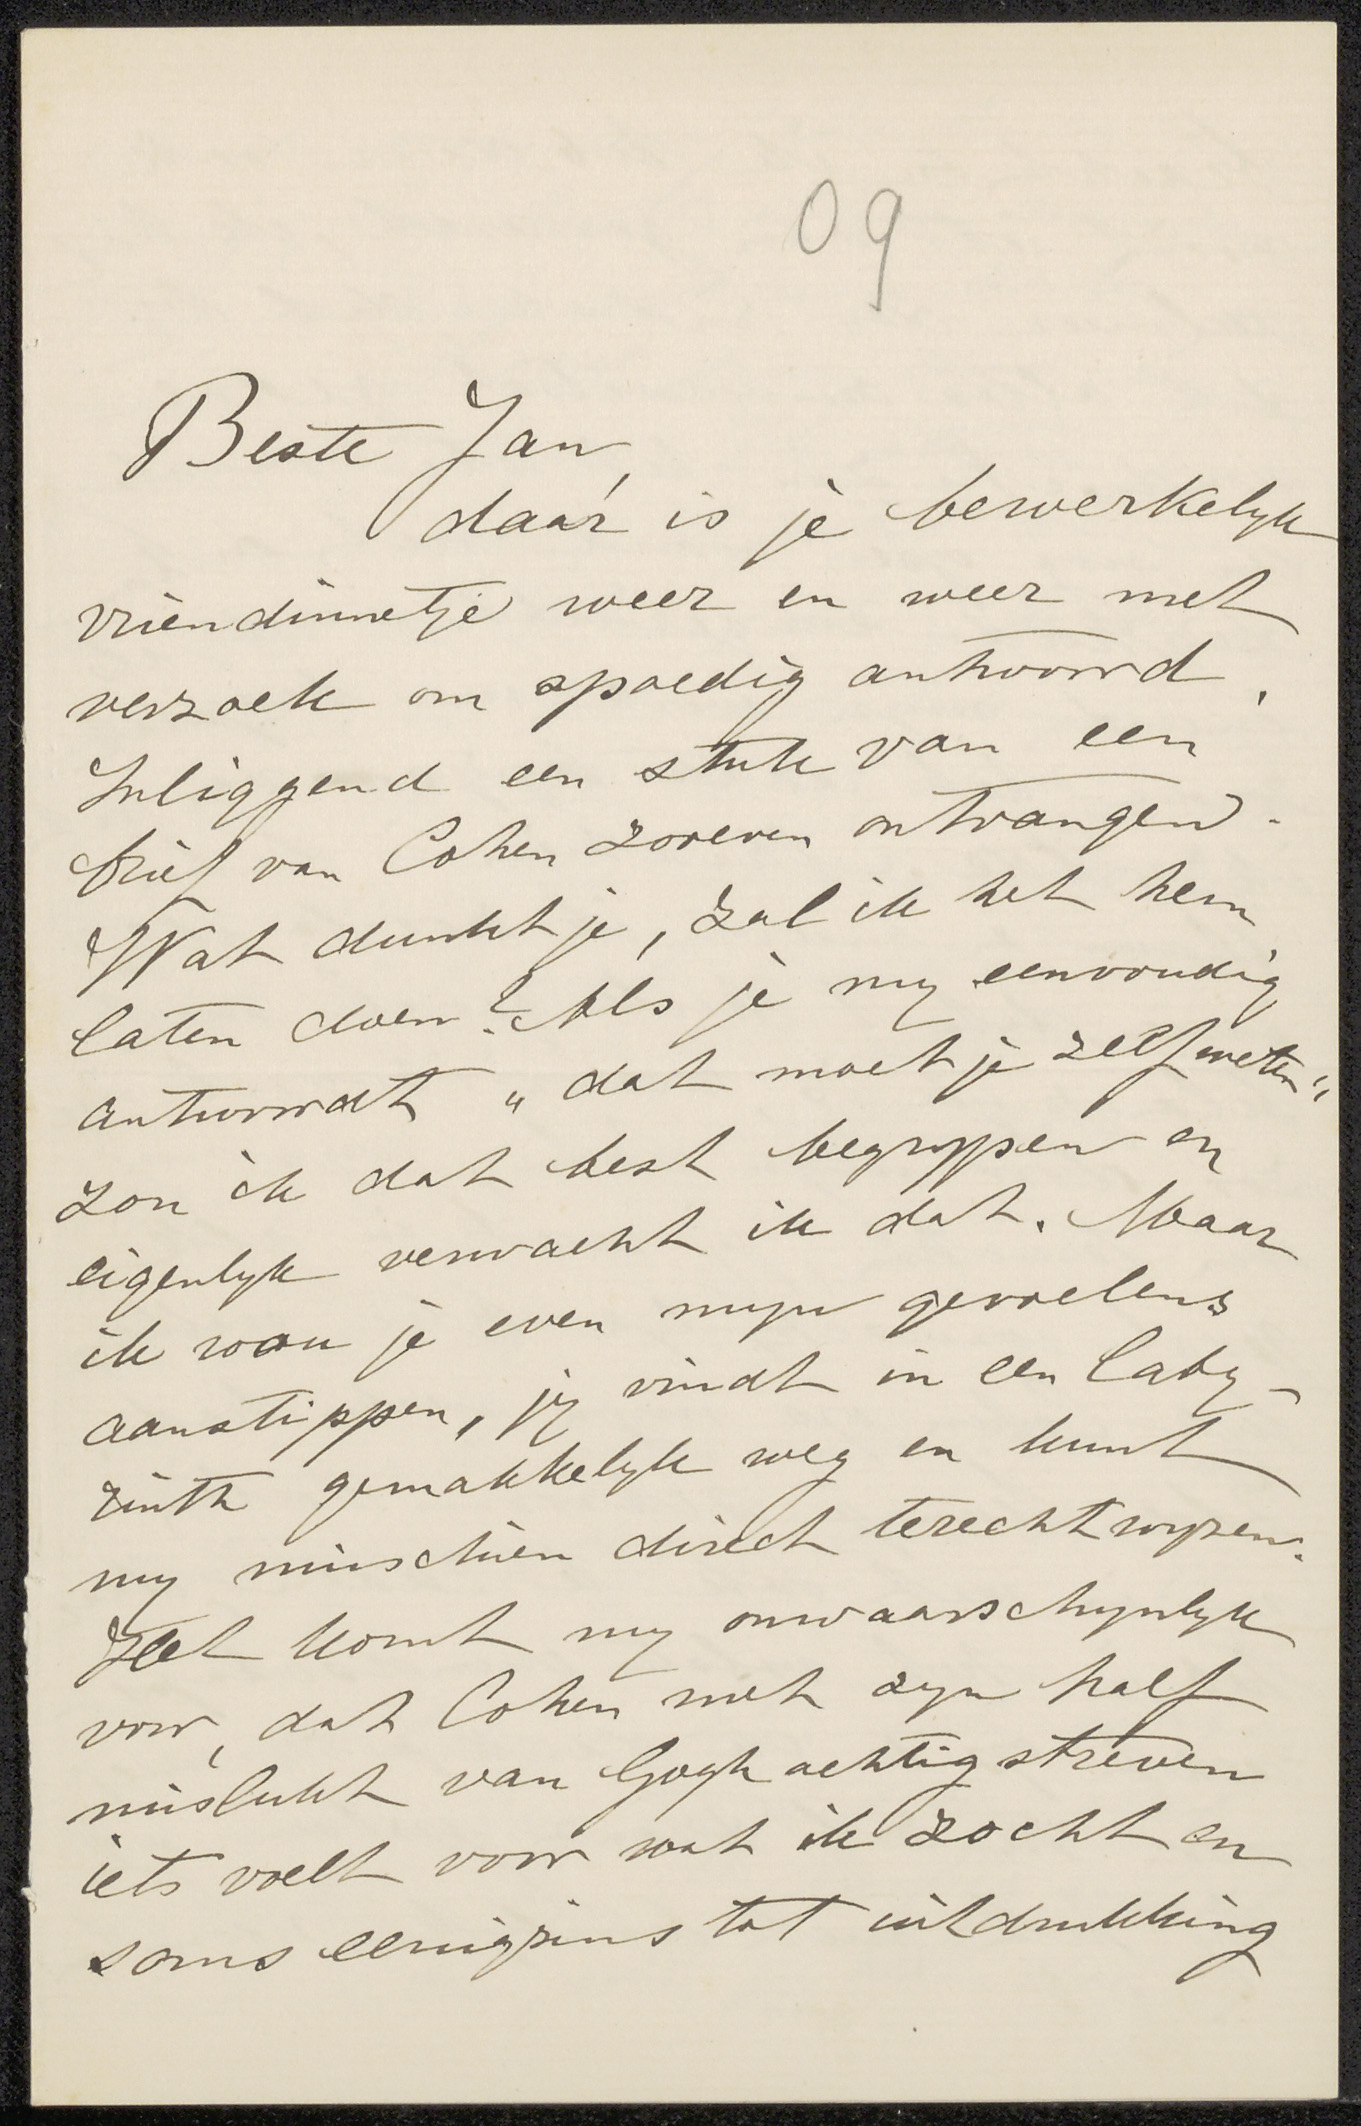 09
Beste Jan,
daár is je bewerkelyk
vriendinnetje weer en weer met
verzoek om spoedig antwoord.
Inliggend een stuk van een
brief van Cohen zooeven ontvangen.
Wat dunkt je, zal ik het hem
laten doen? Als je my eenvoudig
antwoordt „dat moet je zelf weten"
zou ik dat best begrypen en
eigenlyk verwacht ik dat. Maar
ik wou je even myn gevoelens
aanstippen, jy vindt in een laby-
rinth gemakkelyk weg en kunt
my misschien direct terechtwyzen.
Het komt my onwaarschynlyk
voor, dat Cohen met zyn half
mislukt van Gogh achtig streven
iets voelt voor wat ik zocht en
soms eenigzins tot uitdrukking